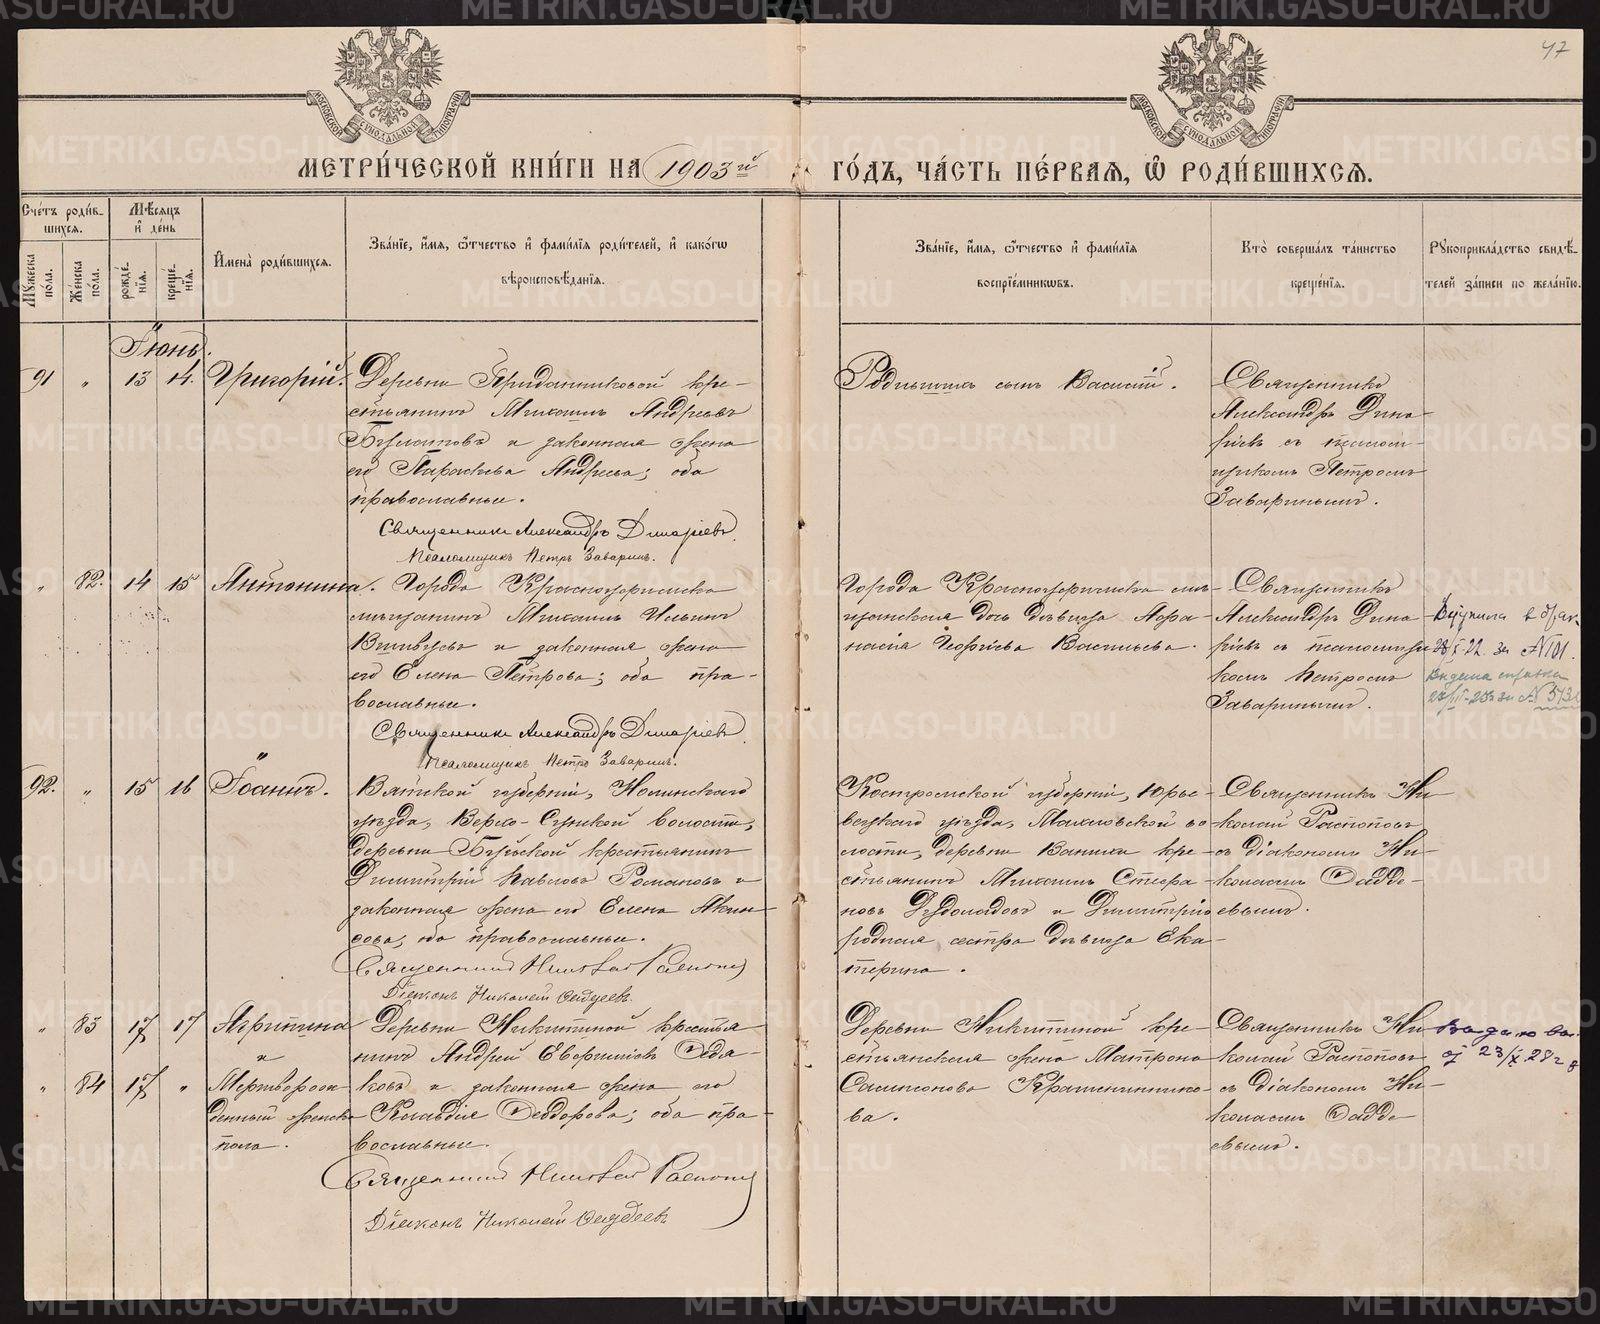 47
МОСКОВСКОЙ СѴНОДАЛЬНОЙ ТИПОГРАФІИ
МОСКОВСКОЙ СѴНОДАЛЬНОЙ ТИПОГРАФІИ
МЕТРИ́ЧЕСКОЙ КНИ́ГИ НА 1903й ГО́ДЪ, ЧА́СТЬ ПЕ́РВАѦ, Ѡ҆ РОДИ́ВШИХСѦ.
Сче́тъ роди́в-
шихсѧ.
Мꙋ́жеска по́ла.
Же́нска по́ла.
Мѣ́сѧцъ
и҆ де́нь
рожде́-
нїѧ.
креще́-
нїѧ.
И҆мена̀ роди́вшихсѧ.
Зва́нїе, и҆́мѧ, ѻ҆́тчество и҆ фами́лїѧ роди́телей, и҆ како́гѡ
вѣроисповѣ́данїѧ.
Зва́нїе, и҆́мѧ, ѻ҆́тчество и҆ фами́лїѧ
воспрїе́мникѡвъ.
Кто̀ соверша́лъ та́инство
креще́нїѧ.
Рꙋкоприкла́дство свидѣ́-
телей за́писи по жела́нїю.
Іюнь.
91 " 13 14. Григорій.
Деревни Приданниковой кре-
стьянинъ Михаилъ Андреевъ
Булатовъ и законная жена
его Параскева Андреева; оба
православные.
Священникъ Александръ Динаріевъ.
Псаломщикъ Петръ Заваринъ.
Родителя сынъ Василій.
Священникъ
Александръ Дина-
ріевъ съ псалом-
щикомъ Петромъ
Заваринымъ.
" 82. 14 15 Антонина.
Города Красноуфимска
мѣщанинъ Михаилъ Ильинъ
и законная жена
его Елена Петрова; оба пра-
вославные.
Священникъ Александръ Динаріевъ
Псаломщикъ Петръ Заваринъ.
Города Красноуфимска мѣ-
щанская дочь дѣвица Афа-
насія Георгіева Васильева.
Священникъ
Александръ Дина-
ріевъ съ псаломщи-
комъ Петромъ
Заваринымъ.
Вступила в брак
22 за №101.
Выдана справка
92. " 15 16 Іоаннъ.
Вятской губерніи, Нолинскаго
уѣзда, Верхо-Сунской волости,
деревни крестьянинъ
Димитрій Павловъ Романовъ и
законная жена его Елена Аки-
оба православные.
Священникъ Николай Распоповъ
Діаконъ Николай Фаддеевъ.
Костромской губерніи, Юрье-
вецкаго уѣзда, во-
лости, деревни Ваниха кре-
стьянинъ Михаилъ Стефа-
новъ и Димитрія
родная сестра дѣвица Ека-
терина.
Священникъ Ни-
колай Распоповъ
съ діакономъ Ни-
колаемъ Фадде-
евымъ.
" 83 17 17 Агрипина
и
" 84 17 " Мертворож-
денный женска
пола.
Деревни Никитиной крестья
нинъ Андрей Евфиміевъ Федя-
ковъ и законная жена его
Клавдія Феодорова; оба пра-
вославные.
Священникъ Николай Распоповъ
Діаконъ Николай Фаддеевъ
Деревни Никитиной кре-
стьянская жена Матрона
Самсонова Крашенинико-
ва.
Священникъ Ни
колай Распоповъ
съ діакономъ Ни-
колаемъ Фадде
евымъ.
23/X 28 г
METRIKI.GASO-URAL.RU